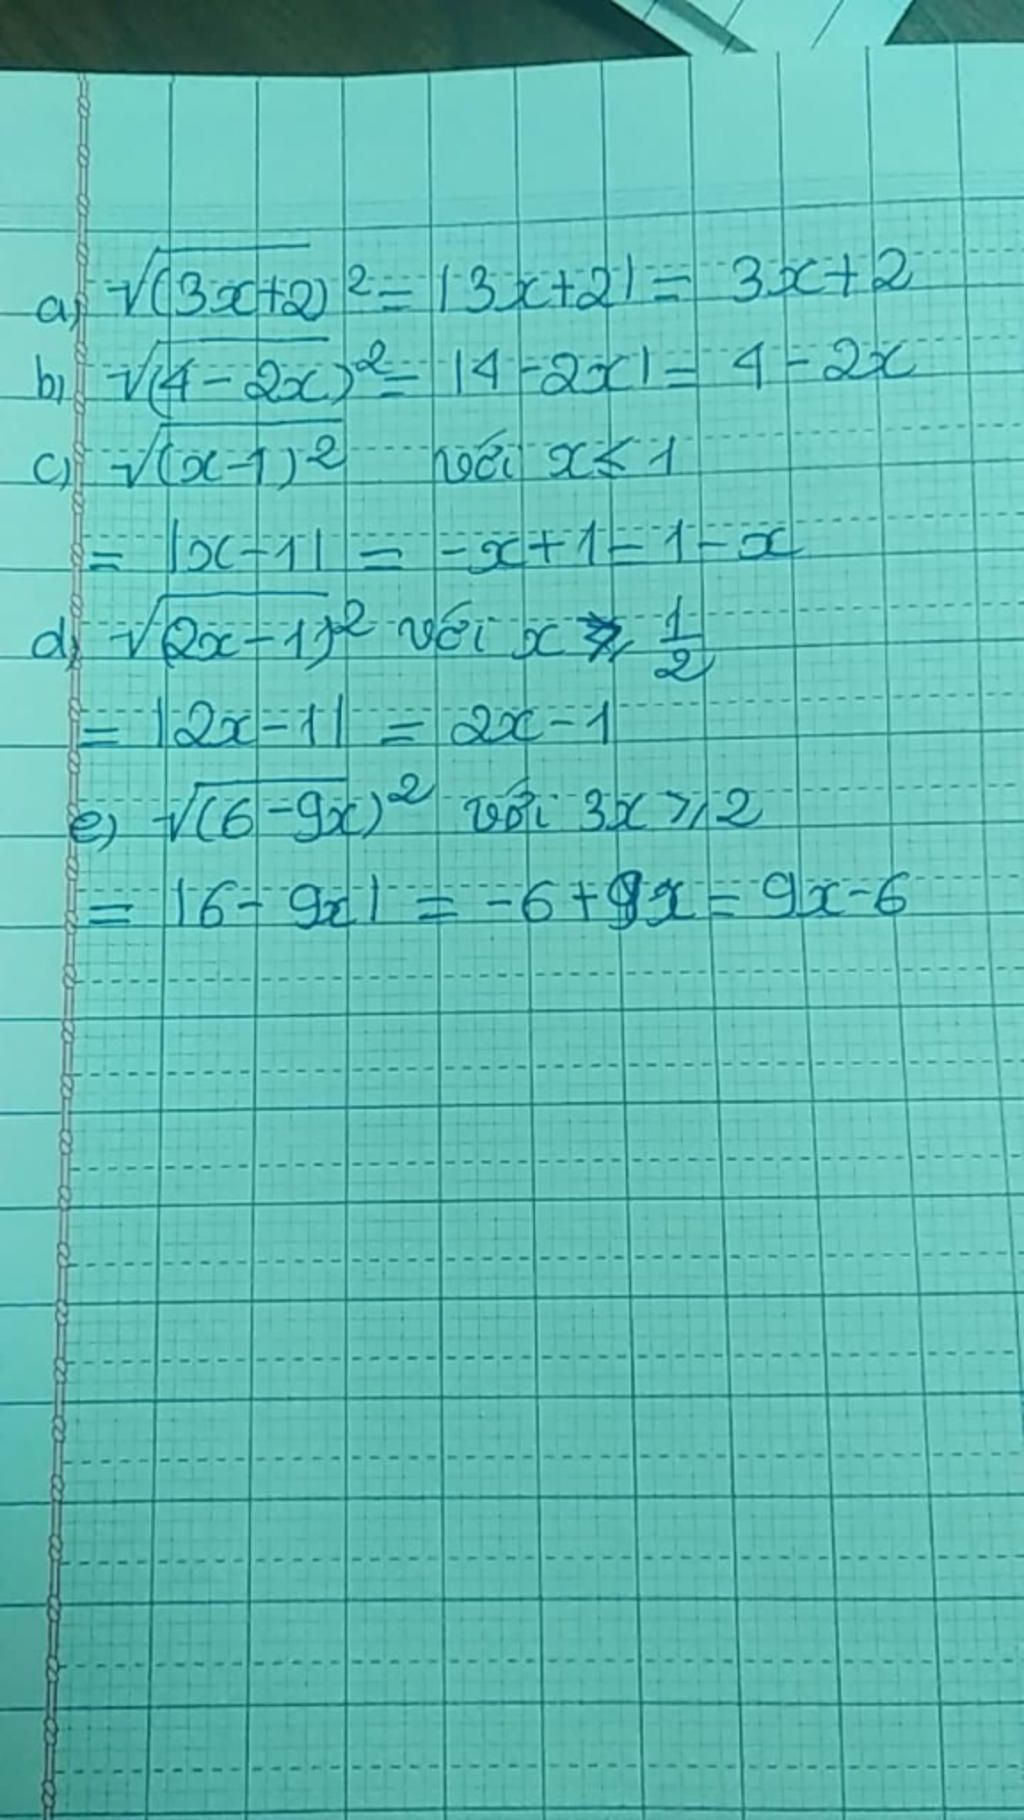 a) √(3x+2)² = |3x+2| = 3x+2
b) √(4-2x)² = |4-2x| = 4-2x
c) √(x-1)² với x ≤ 1
= |x-1| = -x+1 = 1-x
d) √(2x-1)² với x ≥ 1/2
= |2x-1| = 2x-1
e) √(6-9x)² với 3x ≥ 2
= |6-9x| = -6+9x = 9x-6